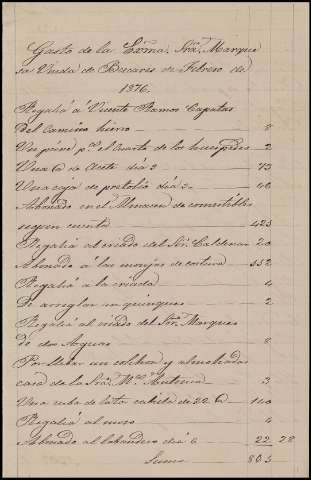 Gasto de la Exma. Sra. Marque
sa Viuda de Benicarés de Febrero de
1876.
Regalia á Vicente Ramos Capataz
del Camino hierro — 8
Un peine pa. el Cuarto de los huespedes — 2
Una @ de Aceite día 2 — 73
Una caja de petolio día 3 — 46
Abonado en el Almacen de comestibles
segun cuenta — 425
Regalia al criado del Sr. Calderon — 20
Abonado á las monjas de costura — 552
Regalia á la criada — 4
De arreglar un quinques — 2
Regalia al criado del Sr. Marques
de dos Aguas — 8
Por llevar un colchon y almohadas
casa de la Sra. Ma. Antonia — 3
Una cuba de lata cabida de 22 @ — 140
Regalia al moso — 4
Abonado al labandero día 6 — 22 78
Suma 805